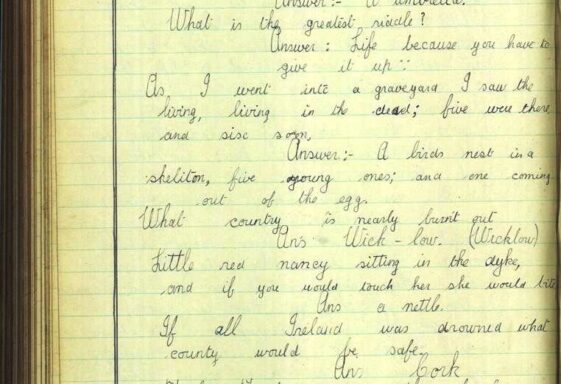 Answer:- A umbrella.
What is the greatest riddle?
Answer: Life because you have to
give it up ::
As, I went into a graveyard I saw the
living, living in the dead; five were there
and sisc soon,
Answer:- A birds nest in a
skeliton, five young ones; and one coming
out of the egg.
What country is nearly burnt out
Ans Wick-low. (Wicklow)
Little red nancy sitting in the dyke,
and if you would touch her she would bite
Ans a nettle.
If all Ireland was drowned what
county would be safe,
Ans Cork